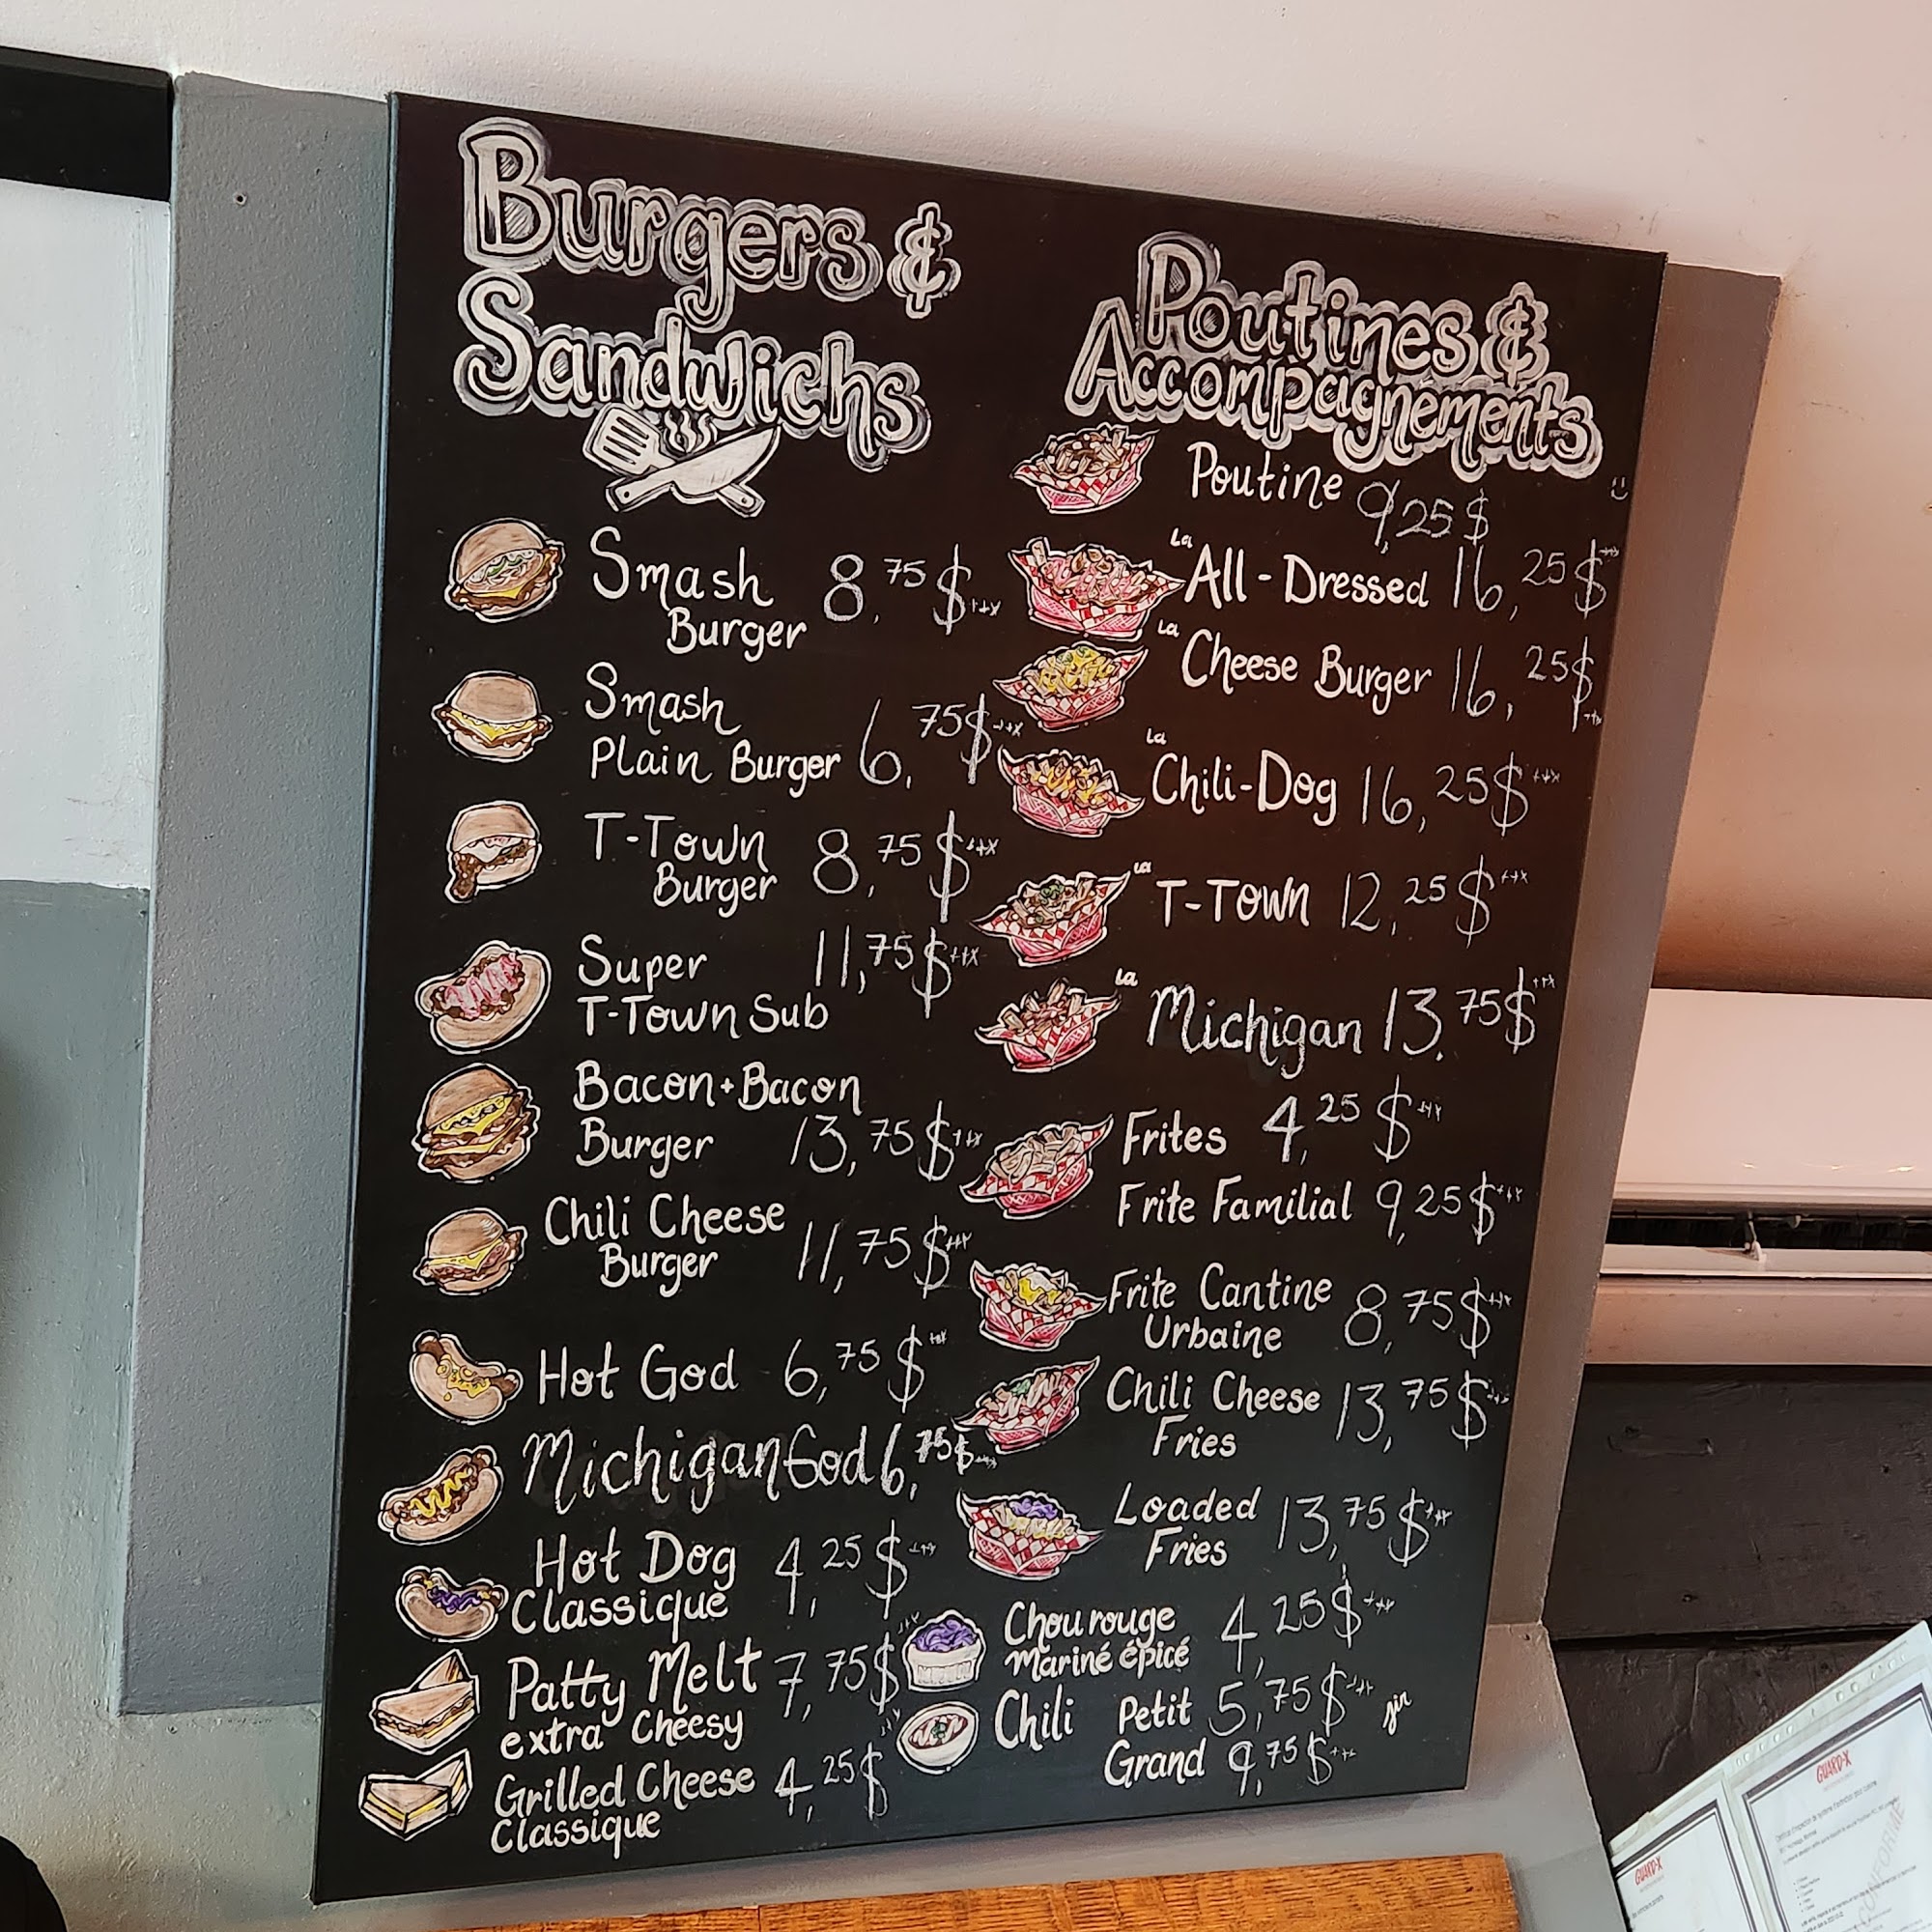 Burgers &
Sandwichs
Smash 8,75$
Burger
Smash
Plain Burger 6,75$
T-Town 8,75$
Burger
Super 11,75$
T-Town Sub
Bacon+Bacon
Burger 13,75$
Chili Cheese
Burger 11,75$
Hot God 6,75$
Michigan God 6,75$
Hot Dog 4,25$
Classique
Patty Melt 7,75$
extra Cheesy
Grilled Cheese 4,25$
Classique
Poutines &
Accompagnements
Poutine 9,25$
La All-Dressed 16,25$
La Cheese Burger 16,25$
La Chili-Dog 16,25$
La T-Town 12,25$
La Michigan 13,75$
Frites 4,25$
Frite Familial 9,25$
Frite Cantine 8,75$
Urbaine
Chili Cheese 13,75$
Fries
Loaded 13,75$
Fries
Chou rouge 4,25$
Mariné épicé
Chili Petit 5,75$
Grand 9,75$
GUARD-X
GUARD-X